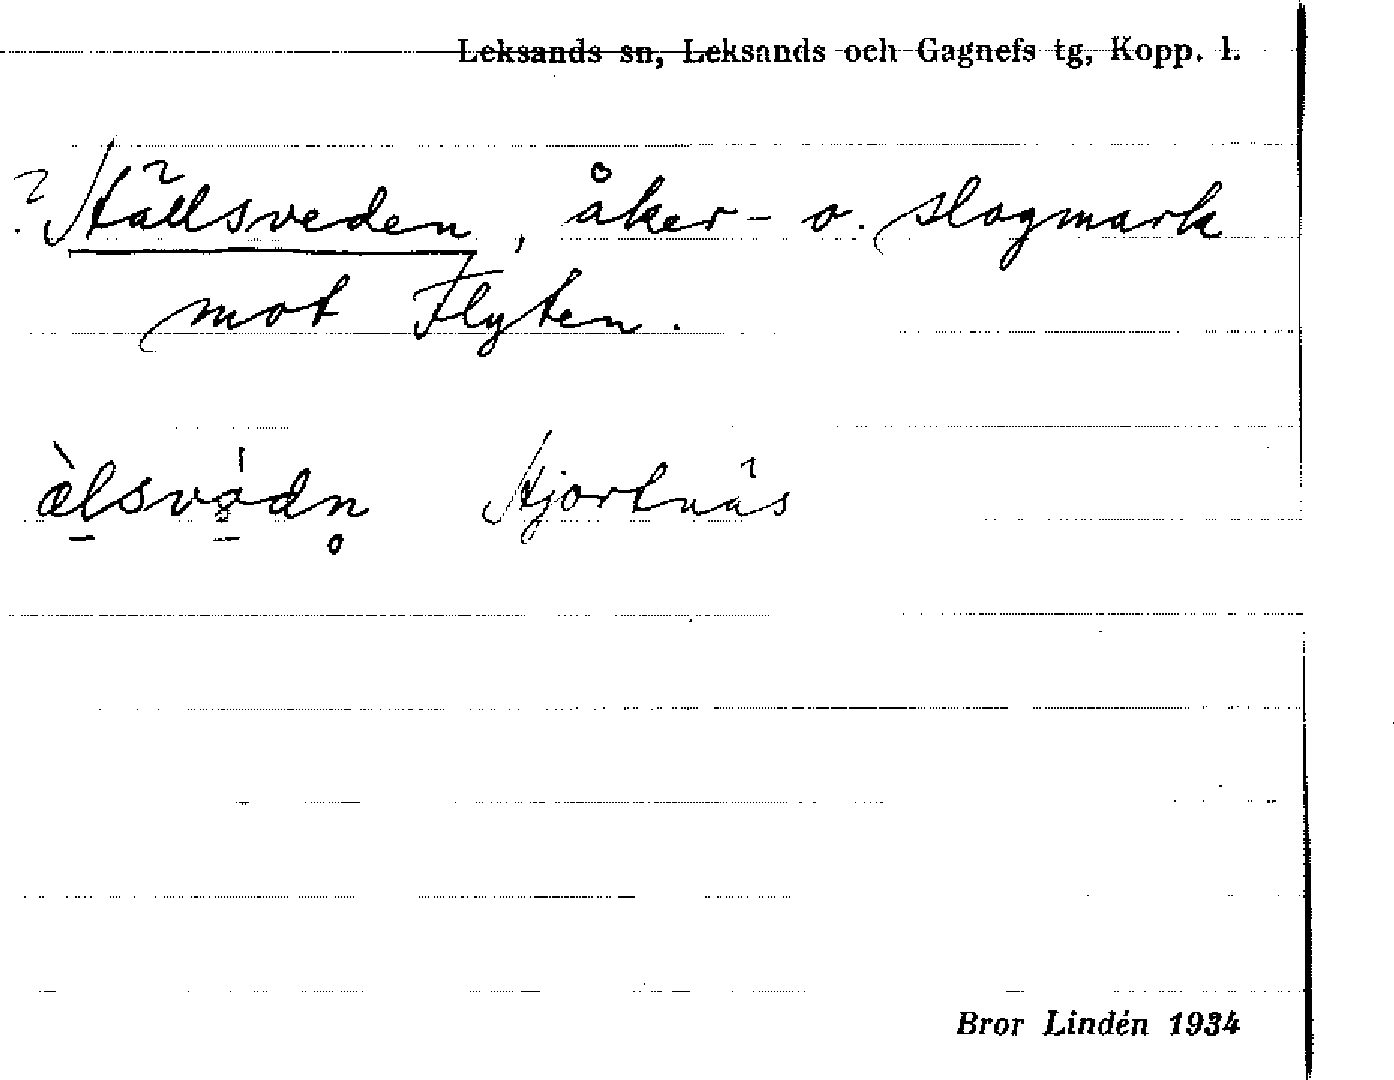 Leksands sn, Leksands och Gagnefs tg, Kopp. l.
? Hällsveden, åker- o. slogmark
mot Flyten.
Hjortnäs
Bror Lindén 1934